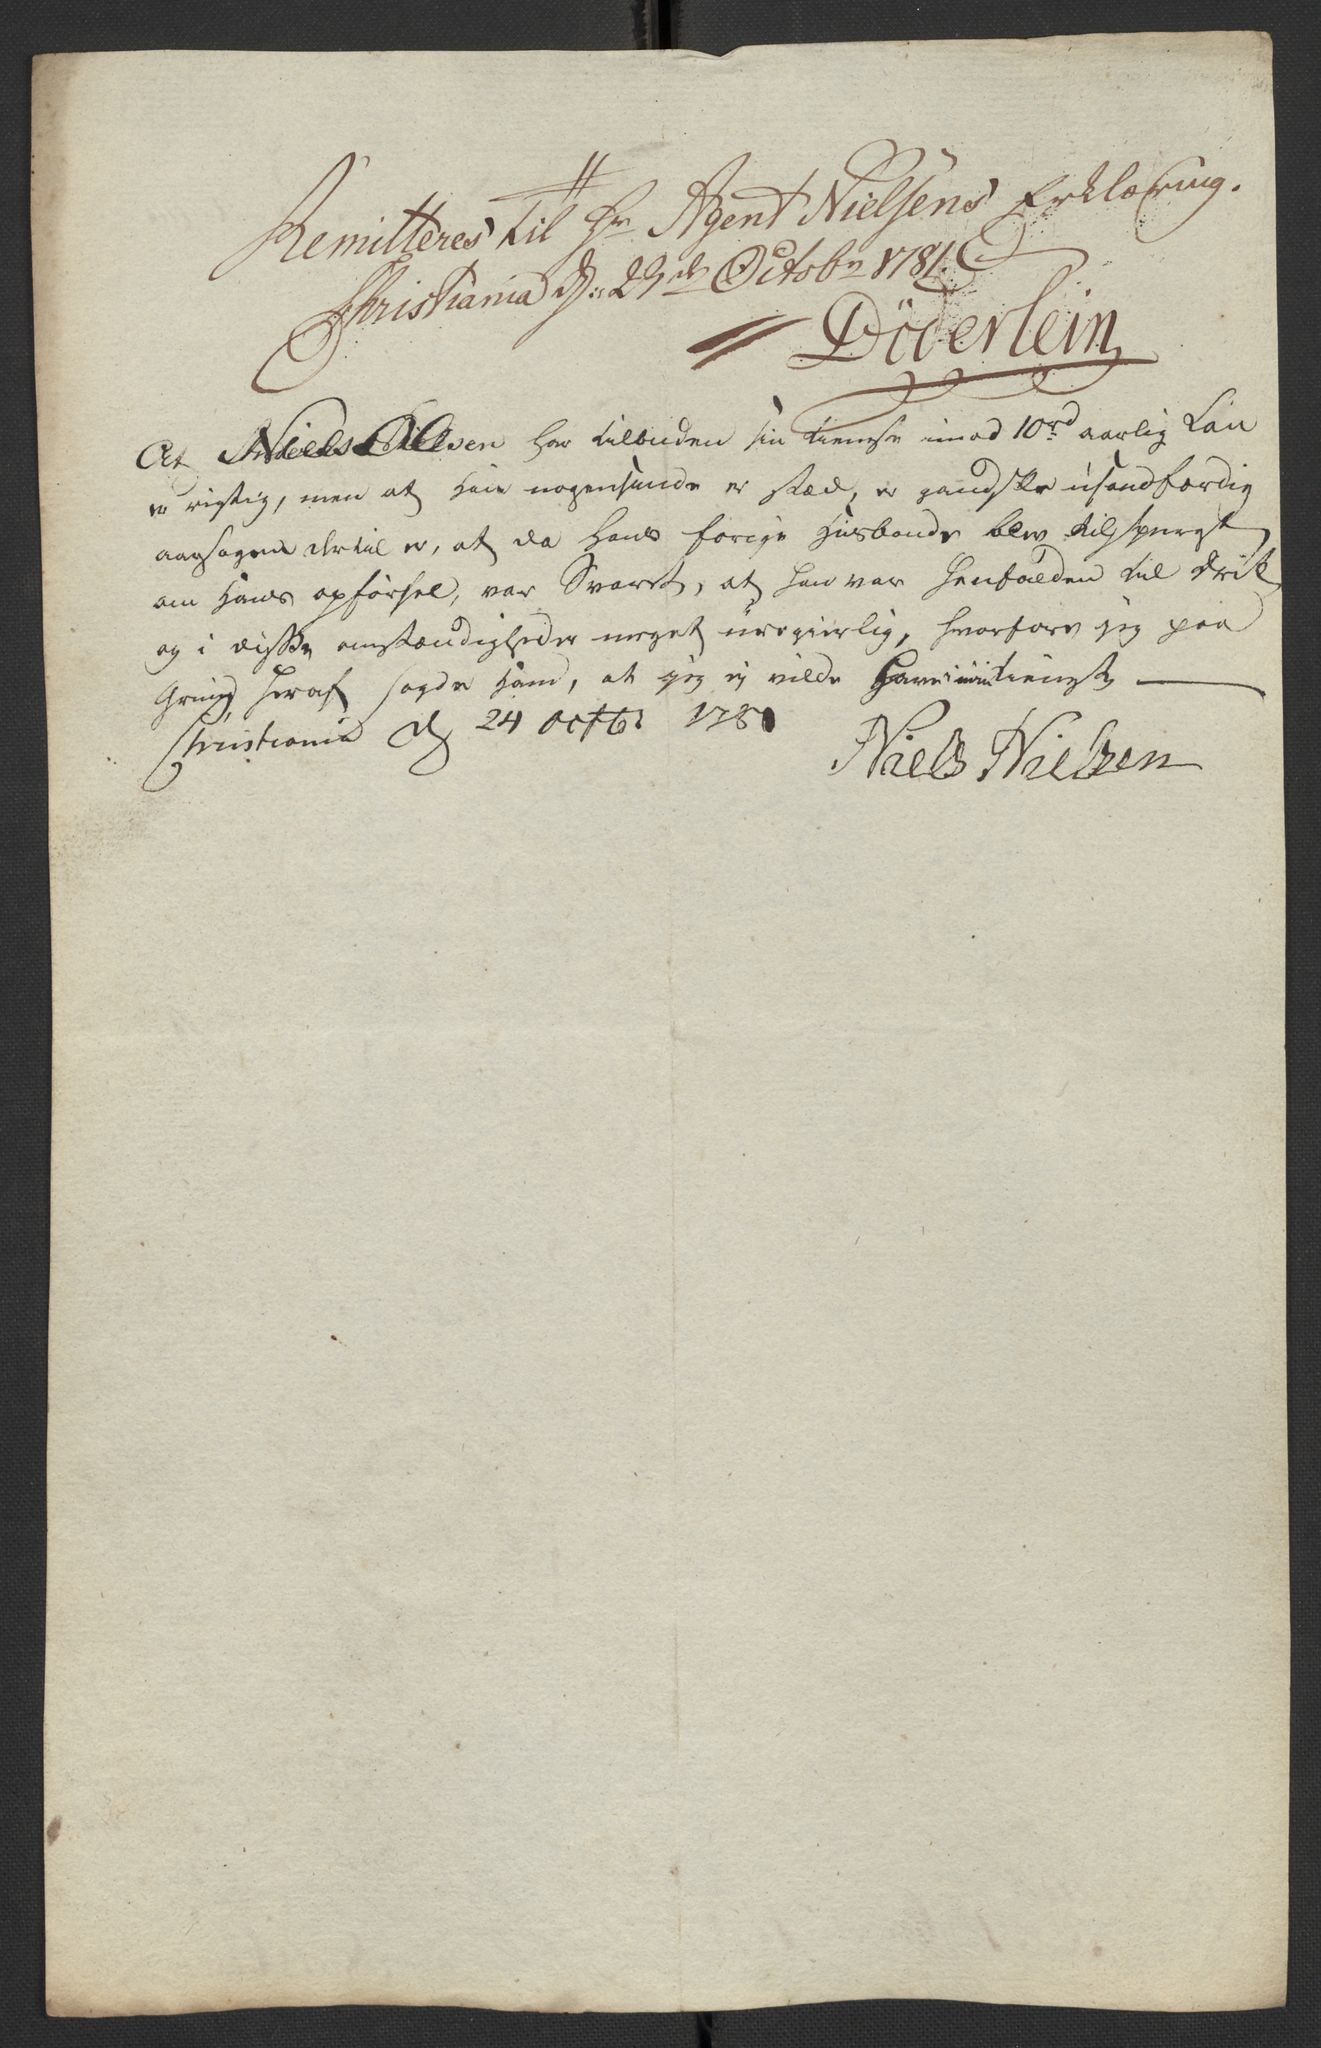 Remitteres til Hr Agent Nielsens Erklæring.
Christiania d: 29de Octobr 1781.
Döderlein
At Niels Olsen har tilbuden sin tieneste imod 10rd aarlig Løn
er rigtig, men at Han nogensinde er fæst, er gandske usandfærdig
aarsagen dertil er, at da Hans forrige Huusbonde blev tilspurgt
om Hans opførsel, var Svaret, at han var henfalden til drik
og i disse omstændigheder meget uregierlig, hvorfore jeg paa
Grund heraf sagde Ham, at jeg ej vilde Have i min tieneste
Christiania d 24 octbr 1781
Niels Nielsen